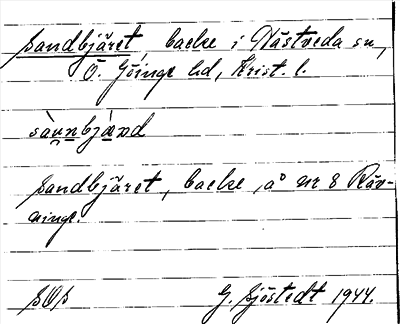 Sandbjäret, backe i Nästveda sn,
Ö. Göinge hd, Krist. l.
sàu̯nbjàrd
Sandbjäret, backe, å nr 8 Räv-
ninge.
SOS G. Sjöstedt 1944.